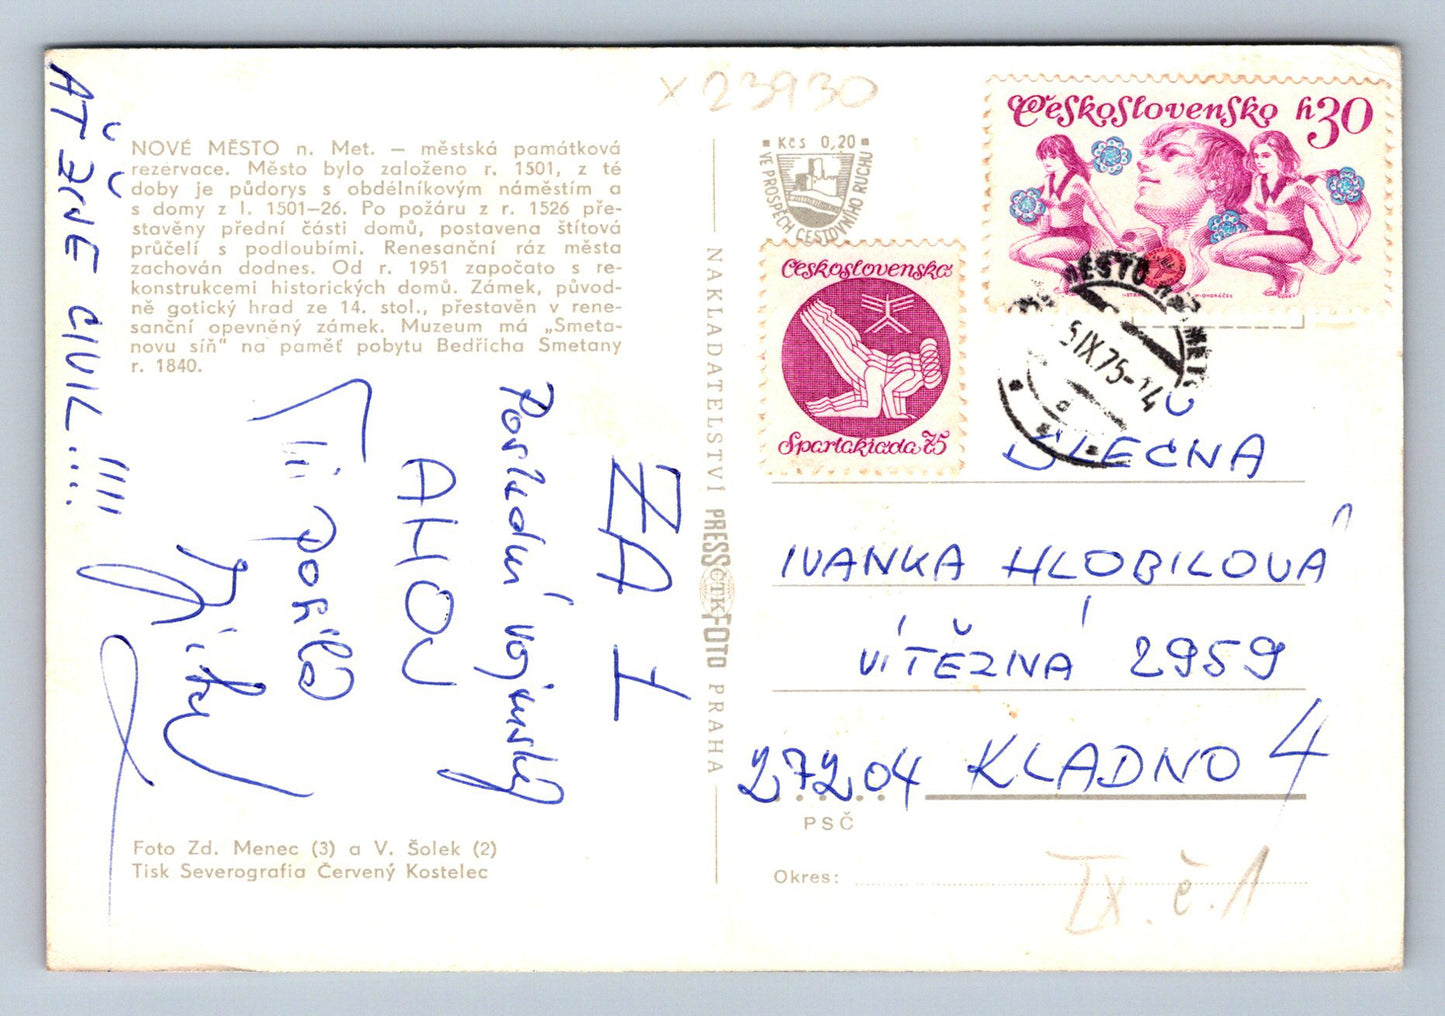 AŤ ŽIJE CIVIL ..... !!!!
X 23930
NOVÉ MĚSTO n. Met. – městská památková
rezervace. Město bylo založeno r. 1501, z té
doby je půdorys s obdélníkovým náměstím a
s domy z l. 1501–26. Po požáru z r. 1526 pře-
stavěny přední části domů, postavena štítová
průčelí s podloubími. Renesanční ráz města
zachován dodnes. Od r. 1951 započato s re-
konstrukcemi historických domů. Zámek, původ-
ně gotický hrad ze 14. stol., přestavěn v rene-
sanční opevněný zámek. Muzeum má „Smeta-
novu síň“ na paměť pobytu Bedřicha Smetany
r. 1840.
ZA 1
Poslední vojenský
AHOJ
Tii posílá
Foto Zd. Menec (3) a V. Šolek (2)
Tisk Severografia Červený Kostelec
NAKLADATELSTVÍ PRESSFOTO PRAHA
ČTK
Kčs 0,20
VE PROSPĚCH CESTOVNÍHO RUCHU
Československo
Spartakiáda 75
Československo h30
MĚSTO
5IX.75-14
SLEČNA
IVANKA HLOBILOVÁ
VÍTĚZNÁ 2959
27204 KLADNO 4
PSČ
Okres:
IX. č. 1